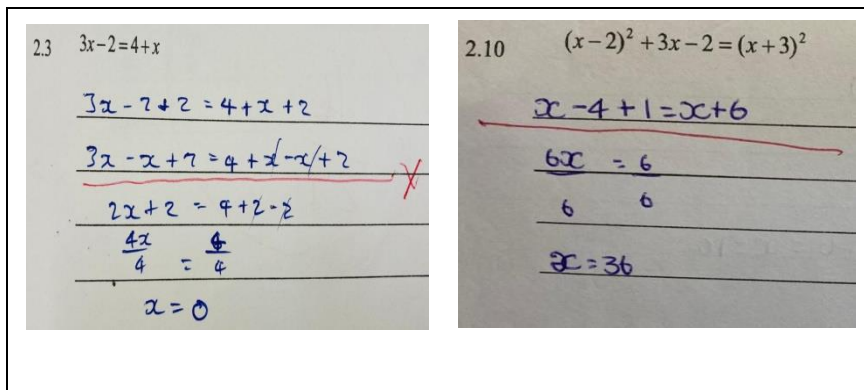 2.3 3x-2=4+x
3x - 2 + 2 = 4 + x + 2
3x - x + 2 = 4 + x - x + 2
2x + 2 = 4 + 2 - 2
4x/4 = 4/4
x = 0
2.10 (x-2)² +3x-2=(x+3)²
x - 4 + 1 = x + 6
6x = 6
6 6
x = 36